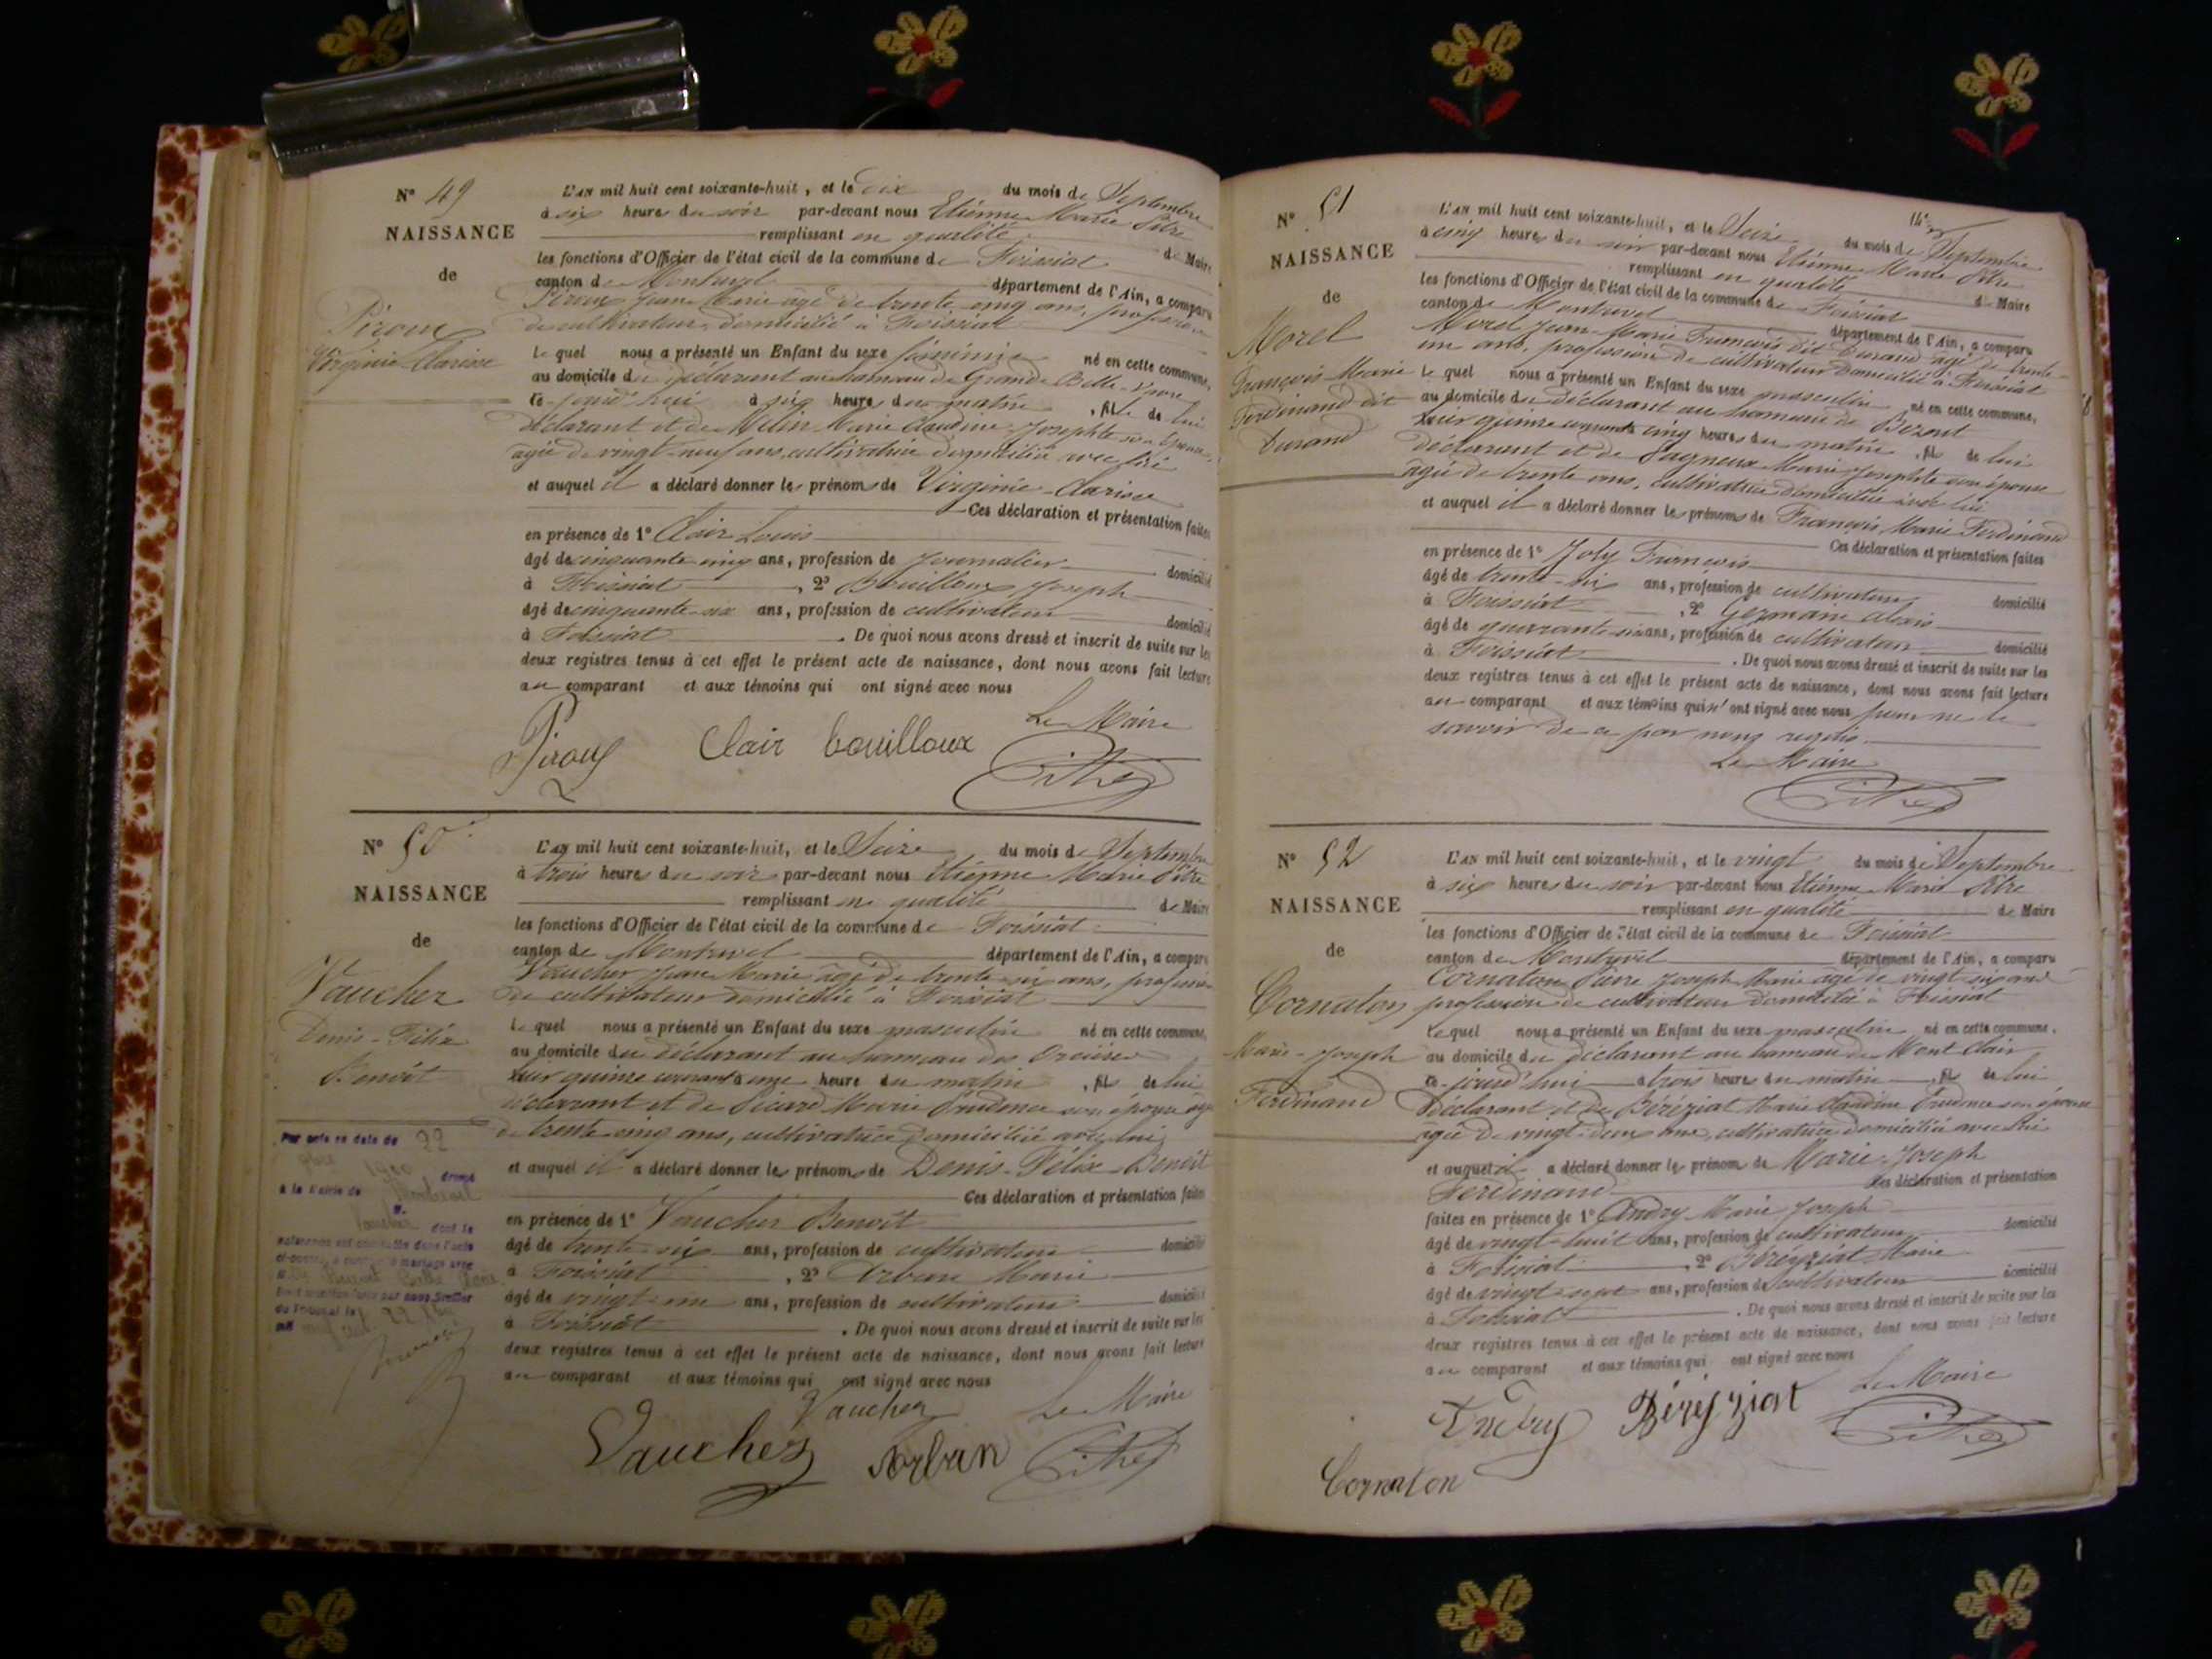 N° 49
NAISSANCE
de
Piroux
Virginie-Clarisse
L'AN mil huit cent soixante-huit, et le dix du mois de Septembre
à six heures du soir par-devant nous Etienne Marie Pitre
remplissant en qualité de Maire
les fonctions d'Officier de l'état civil de la commune de Foissiat
canton de Montrevel département de l'Ain, a comparu
Piroux Jean Marie âgé de trente cinq ans, profession
de cultivateur, domicilié à Foissiat
Le quel nous a présenté un Enfant du sexe féminin né en cette commune,
au domicile du déclarant au hameau de Grande Belle
ce-jourd'hui à six heures du matin, fille de lui
déclarant et de Marie Claudine Josephte son épouse,
agée de vingt-neuf ans, cultivatrice domiciliée avec lui
et auquel il a déclaré donner les prénoms de Virginie-Clarisse
Ces déclaration et présentation faites
en présence de 1° Clair Louis
âgé de cinquante cinq ans, profession de journalier domicilié
à Foissiat, 2° Bouilloux Joseph
âgé de cinquante-six ans, profession de cultivateur domicilié
à Foissiat. De quoi nous avons dressé et inscrit de suite sur les
deux registres tenus à cet effet le présent acte de naissance, dont nous avons fait lecture
au comparant et aux témoins qui ont signé avec nous
Le Maire
Piroux Clair bouilloux Pitre
N° 50
NAISSANCE
de
Vaucher
Denis-Félix
Benoît
L'AN mil huit cent soixante-huit, et le Seize du mois de Septembre
à trois heures du soir par-devant nous Etienne Marie Pitre
remplissant en qualité de Maire
les fonctions d'Officier de l'état civil de la commune de Foissiat
canton de Montrevel département de l'Ain, a comparu
Vaucher Jean Marie âgé de trente-six ans, profession
de cultivateur domicilié à Foissiat
Le quel nous a présenté un Enfant du sexe masculin né en cette commune,
au domicile du déclarant au hameau des
hier quinze courant à onze heure du matin, fil de lui
déclarant et de Picard Marie Prudence son épouse âgée
de trente cinq ans, cultivatrice domiciliée avec lui
et auquel il a déclaré donner les prénoms de Denis-Félix-Benoît
Ces déclaration et présentation faites
en présence de 1° Vaucher Benoît
âgé de trente-six ans, profession de cultivateur domicilié
à Foissiat, 2° Urban Marie
âgé de vingt-un ans, profession de cultivateur domicilié
à Foissiat. De quoi nous avons dressé et inscrit de suite sur les
deux registres tenus à cet effet le présent acte de naissance, dont nous avons fait lecture
au comparant et aux témoins qui ont signé avec nous
Vaucher Le Maire
Vaucher Urban Pitre
Par acte en date du 22
1900 dressé
à la Mairie de
Vaucher dont la
naissance est constatée dans l'acte
ci-contre, a contracté mariage avec
N° 51
NAISSANCE
de
Morel
François-Marie
Ferdinand dit
Durand
L'AN mil huit cent soixante-huit, et le Seize du mois de Septembre
à cinq heures du soir par-devant nous Etienne Marie Pitre
remplissant en qualité de Maire
les fonctions d'Officier de l'état civil de la commune de Foissiat
canton de Montrevel département de l'Ain, a comparu
Morel Jean-Marie François dit Durand âgé de trente-
un ans, profession de cultivateur domicilié à Foissiat
Le quel nous a présenté un Enfant du sexe masculin né en cette commune,
au domicile du déclarant au hameau de Bezout
hier quinze courant à cinq heures du matin, fil de lui
déclarant et de Pagneux Marie Josephte son épouse
agée de trente ans, cultivatrice domiciliée avec lui
et auquel il a déclaré donner les prénoms de François Marie Ferdinand
Ces déclaration et présentation faites
en présence de 1° Joly François
âgé de trente-six ans, profession de cultivateur domicilié
à Foissiat, 2° Germain Alexis
âgé de quarante-six ans, profession de cultivateur domicilié
à Foissiat. De quoi nous avons dressé et inscrit de suite sur les
deux registres tenus à cet effet le présent acte de naissance, dont nous avons fait lecture
au comparant et aux témoins qui n'ont signé avec nous pour ne le
savoir de ce par nous requis.
Le Maire
Pitre
N° 52
NAISSANCE
de
Cornaton
Marie-Joseph
Ferdinand
L'AN mil huit cent soixante-huit, et le vingt du mois de Septembre
à six heures du soir par-devant nous Etienne Marie Pitre
remplissant en qualité de Maire
les fonctions d'Officier de l'état civil de la commune de Foissiat
canton de Montrevel département de l'Ain, a comparu
Cornaton Pierre Joseph Marie âgé de vingt-six ans
profession de cultivateur domicilié à Foissiat
Le quel nous a présenté un Enfant du sexe masculin né en cette commune,
au domicile du déclarant au hameau de Mont Clair
ce-jourd'hui à trois heures du matin, fil de lui
déclarant et de Béréziat Marie Claudine Prudence son épouse
agée de vingt-deux ans, cultivatrice domiciliée avec lui
et auquel il a déclaré donner les prénoms de Marie-Joseph
Ferdinand Ces déclaration et présentation
faites en présence de 1° Andry Marie Joseph
âgé de vingt-huit ans, profession de cultivateur domicilié
à Foissiat, 2° Béréziat Marie
âgé de vingt-sept ans, profession de cultivateur domicilié
à Foissiat. De quoi nous avons dressé et inscrit de suite sur les
deux registres tenus à cet effet le présent acte de naissance, dont nous avons fait lecture
au comparant et aux témoins qui ont signé avec nous
Le Maire
Andry Béréziat Pitre
Cornaton